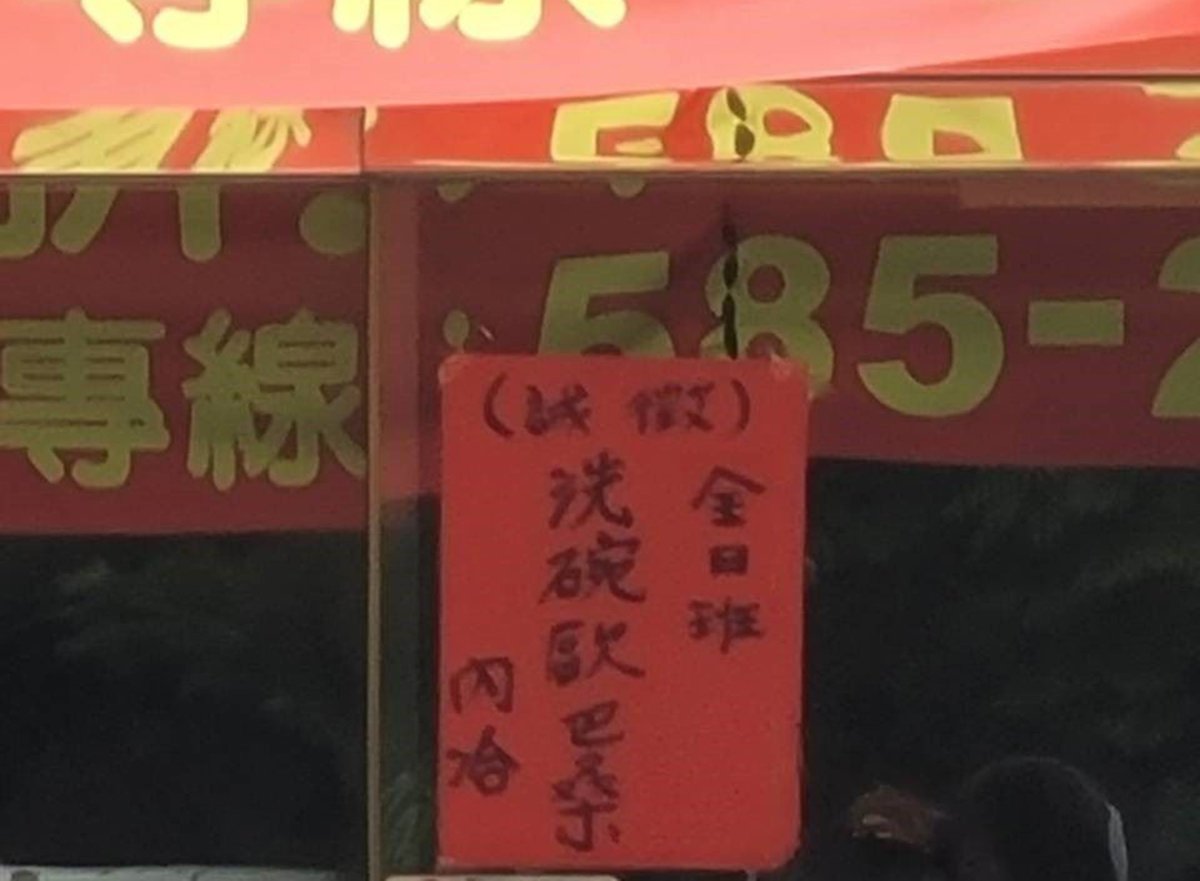 專線
585-2
(誠徵)
全日班
洗碗歐巴桑
內洽